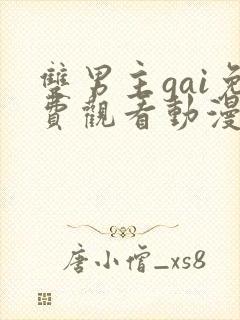 雙男主gai免
費觀看動漫
唐小僧_xs8